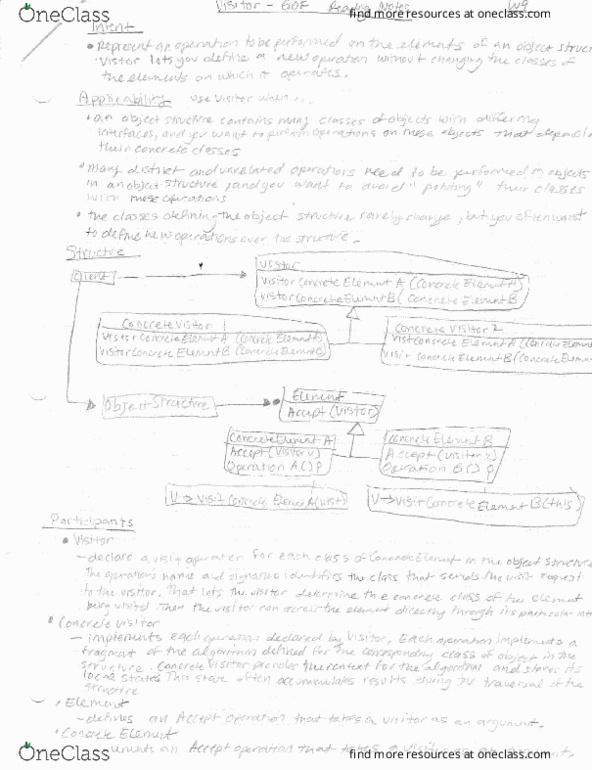 Visitor - GOF Reading Notes W9
OneClass
find more resources at oneclass.com
Intent
• Represent an operation to be performed on the elements of an object struc
Visitor lets you define a new operation without changing the classes of
the elements on which it operates.
Applicability use Visitor when...
• an object structure contains many classes of objects with differing
interfaces, and you want to perform operations on these objects that depend
their concrete classes
• Many distinct and unrelated operations need to be performed on objects
in an object structure, and you want to avoid "polluting" their classes
with these operations
• the classes defining the object structure rarely change, but you often want
to define new operations over the structure.
Structure
Client
Visitor
Visitor Concrete Element A (Concrete Element A)
Visitor Concrete Element B (Concrete Element B
Concrete Visitor 1
Visitor Concrete Element A (Concrete Element A)
Visitor Concrete Element B (Concrete Element B)
Concrete Visitor 2
Visit Concrete Element A (Concrete Eleme
Visit Concrete Element B (Concrete Elemen
Object Structure
Element
Accept (Visitor)
Concrete Element A
Accept (Visitor v)
Operation A()
Concrete Element B
Accept (Visitor
Operation B()
V -> Visit Concrete Element A
V -> Visit Concrete Element B (this)
Participants
• Visitor
- declare a visit operation for each class of Concrete Element in the object structure
The operations name and signature identifies the class that sends the visit request
to the visitor. That lets the visitor determine the concrete class of the element
being visited. Then the visitor can access the element directly through its particular inte
• Concrete Visitor
- implements each operation declared by Visitor. Each operation implements a
fragment of the algorithm defined for the corresponding class of object in the
structure. Concrete Visitor provides the context for the algorithm and stores its
local state. This state often accumulates results during the traversal of the
structure
• Element
- defines an Accept operation that takes a visitor as an argument.
• Concrete Element
uments an Accept operation that takes a visitor as an argument.
OneClass
find more resources at oneclass.com